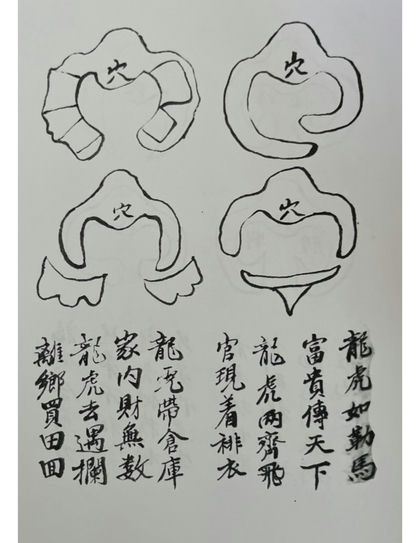 穴
穴
穴
穴
龍虎如勒馬
富貴傳天下
龍虎兩齊飛
官現着裶衣
龍虎帶倉庫
家内財無數
龍虎去遇攔
離鄉買田回